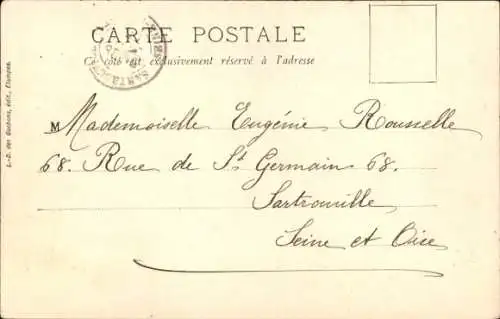 CARTE POSTALE
Ce côté est exclusivement réservé à l'adresse
Mademoiselle Eugénie Rousselle
68. Rue de St Germain 68.
Sartrouville
Seine et Oise
L.-D. des Gachons, édit., Etampes